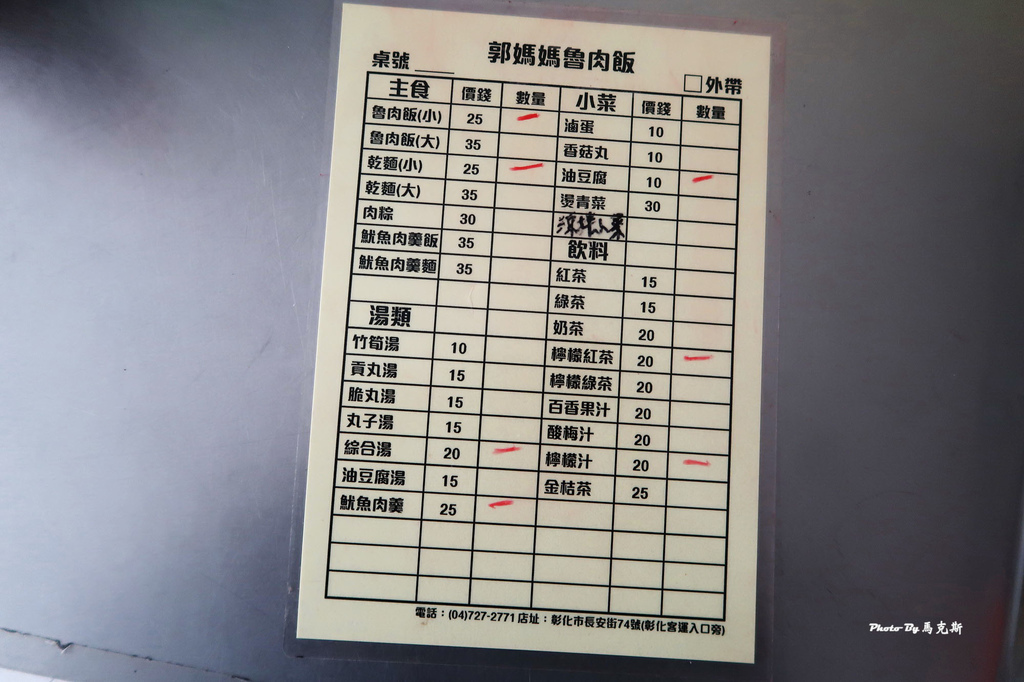 郭媽媽魯肉飯
桌號____ □外帶
主食 價錢 數量 小菜 價錢 數量
魯肉飯(小) 25 滷蛋 10
魯肉飯(大) 35 香菇丸 10
乾麵(小) 25 油豆腐 10
乾麵(大) 35 燙青菜 30
肉粽 30 涼拌小菜
魷魚肉羹飯 35 飲料
魷魚肉羹麵 35 紅茶 15
綠茶 15
湯類 奶茶 20
竹筍湯 10 檸檬紅茶 20
貢丸湯 15 檸檬綠茶 20
脆丸湯 15 百香果汁 20
丸子湯 15 酸梅汁 20
綜合湯 20 檸檬汁 20
油豆腐湯 15 金桔茶 25
魷魚肉羹 25
電話：(04)727-2771 店址：彰化市長安街74號(彰化客運入口旁)
Photo By 馬克斯